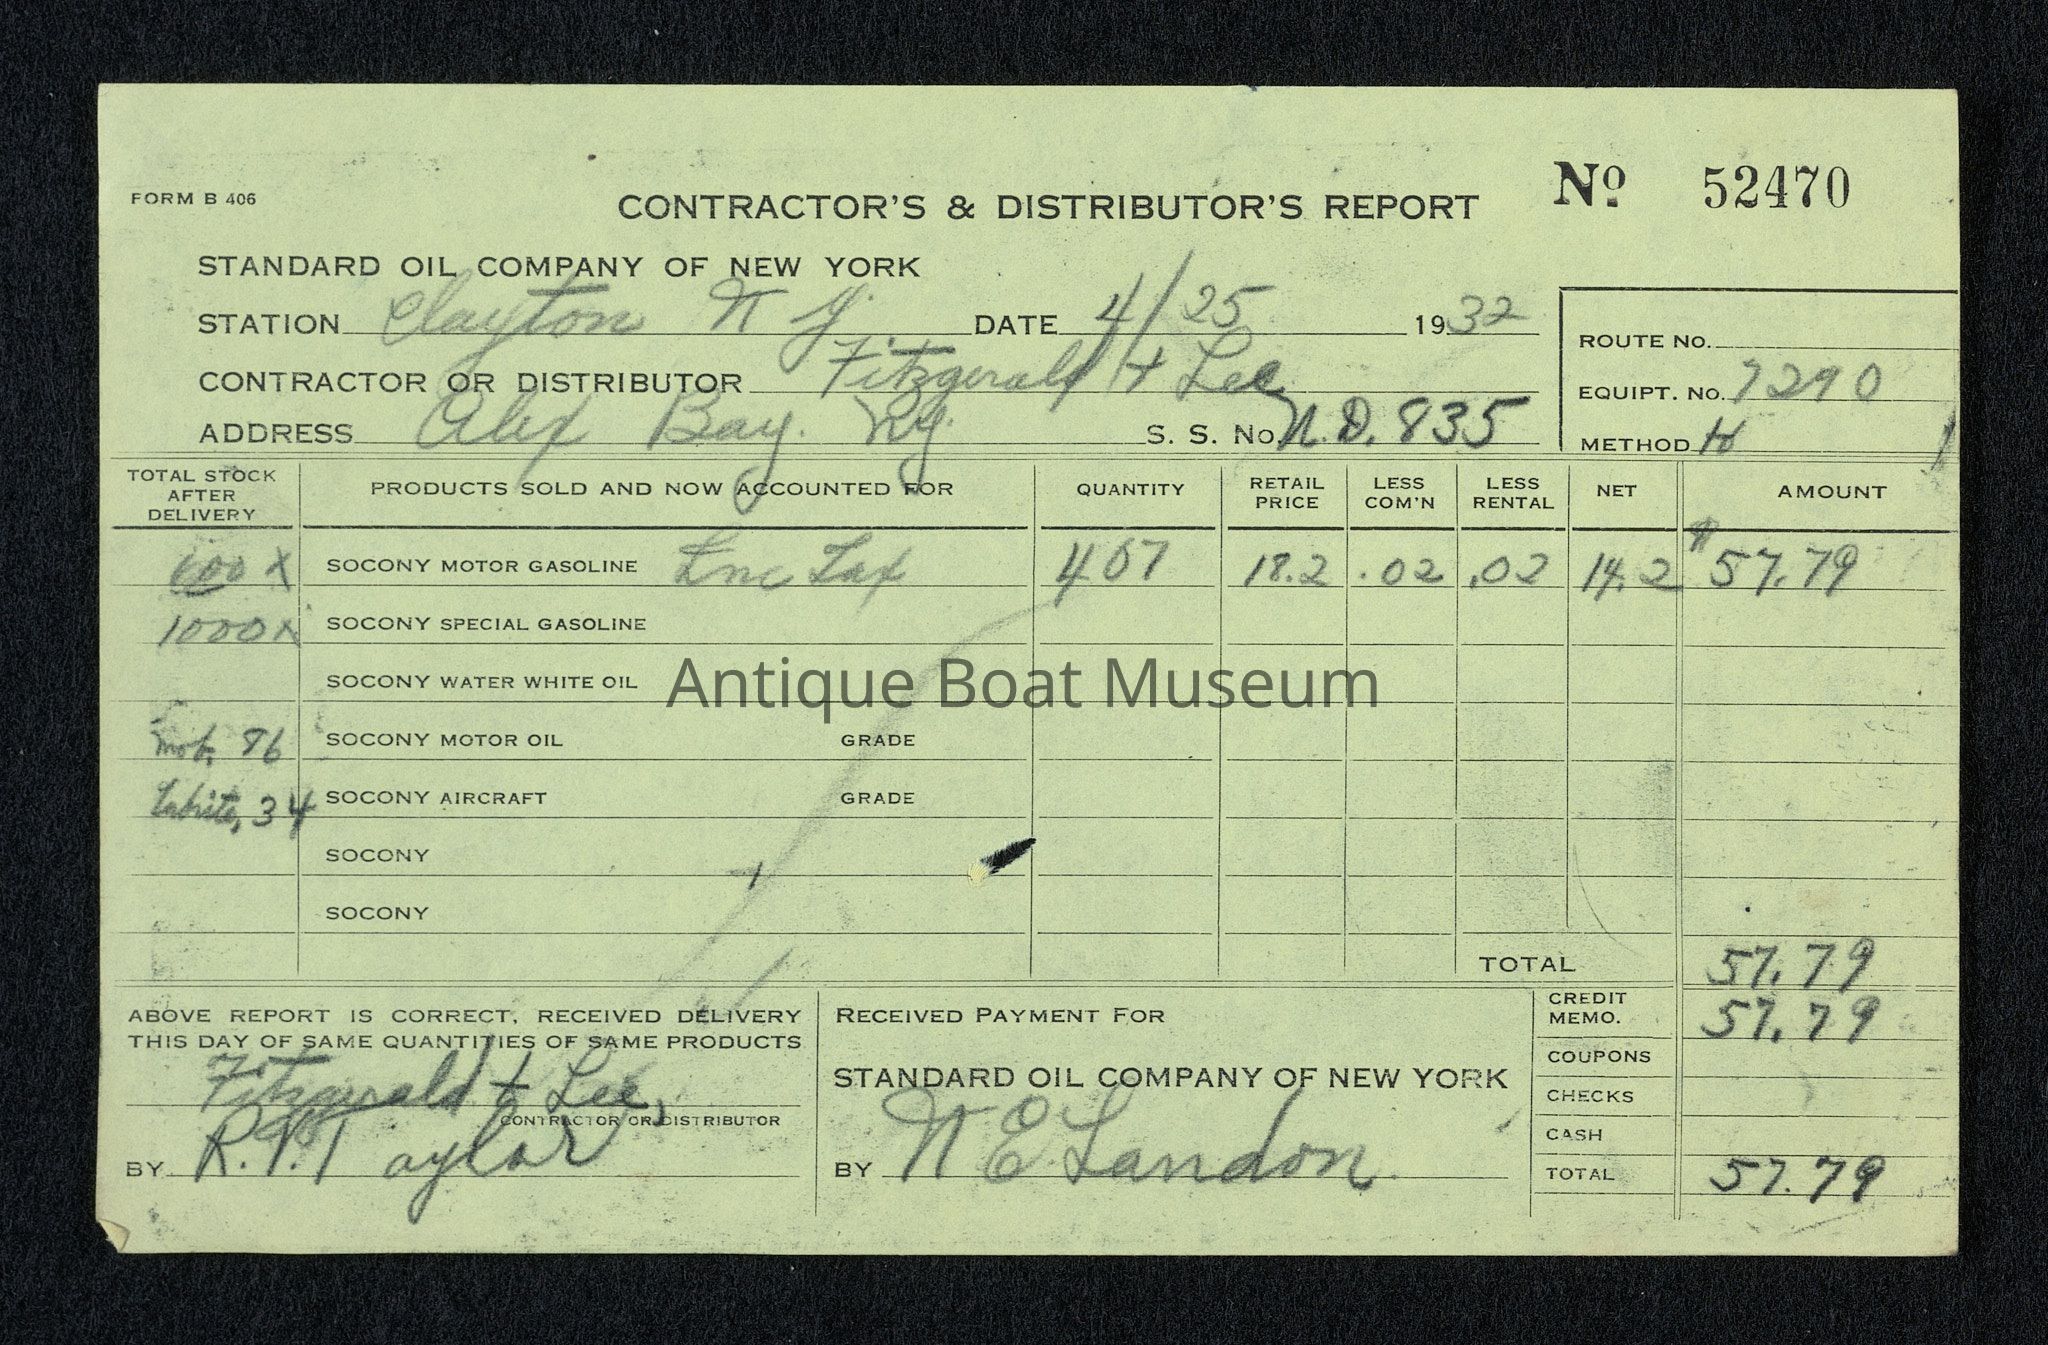 FORM B 406
CONTRACTOR'S & DISTRIBUTOR'S REPORT
No 52470
STANDARD OIL COMPANY OF NEW YORK
STATION Clayton N Y. DATE 4/25 1932
CONTRACTOR OR DISTRIBUTOR Fitzgerald + Lee
ADDRESS Alex Bay. Ny. S. S. No. N.D. 835
ROUTE No.
EQUIPT. No. 7290
METHOD H
TOTAL STOCK AFTER DELIVERY PRODUCTS SOLD AND NOW ACCOUNTED FOR QUANTITY RETAIL PRICE LESS COM'N LESS RENTAL NET AMOUNT
600 X SOCONY MOTOR GASOLINE Inc Tax 407 18.2 .02 .02 14.2 $57.79
1000 X SOCONY SPECIAL GASOLINE
SOCONY WATER WHITE OIL
Antique Boat Museum
Mob. 86 SOCONY MOTOR OIL GRADE
34 SOCONY AIRCRAFT GRADE
SOCONY
SOCONY
TOTAL 57.79
ABOVE REPORT IS CORRECT, RECEIVED DELIVERY
THIS DAY OF SAME QUANTITIES OF SAME PRODUCTS
Fitzgerald + Lee,
CONTRACTOR OR DISTRIBUTOR
BY R.V. Taylor
RECEIVED PAYMENT FOR
STANDARD OIL COMPANY OF NEW YORK
BY N E. Landon
CREDIT MEMO. 57.79
COUPONS
CHECKS
CASH
TOTAL 57.79